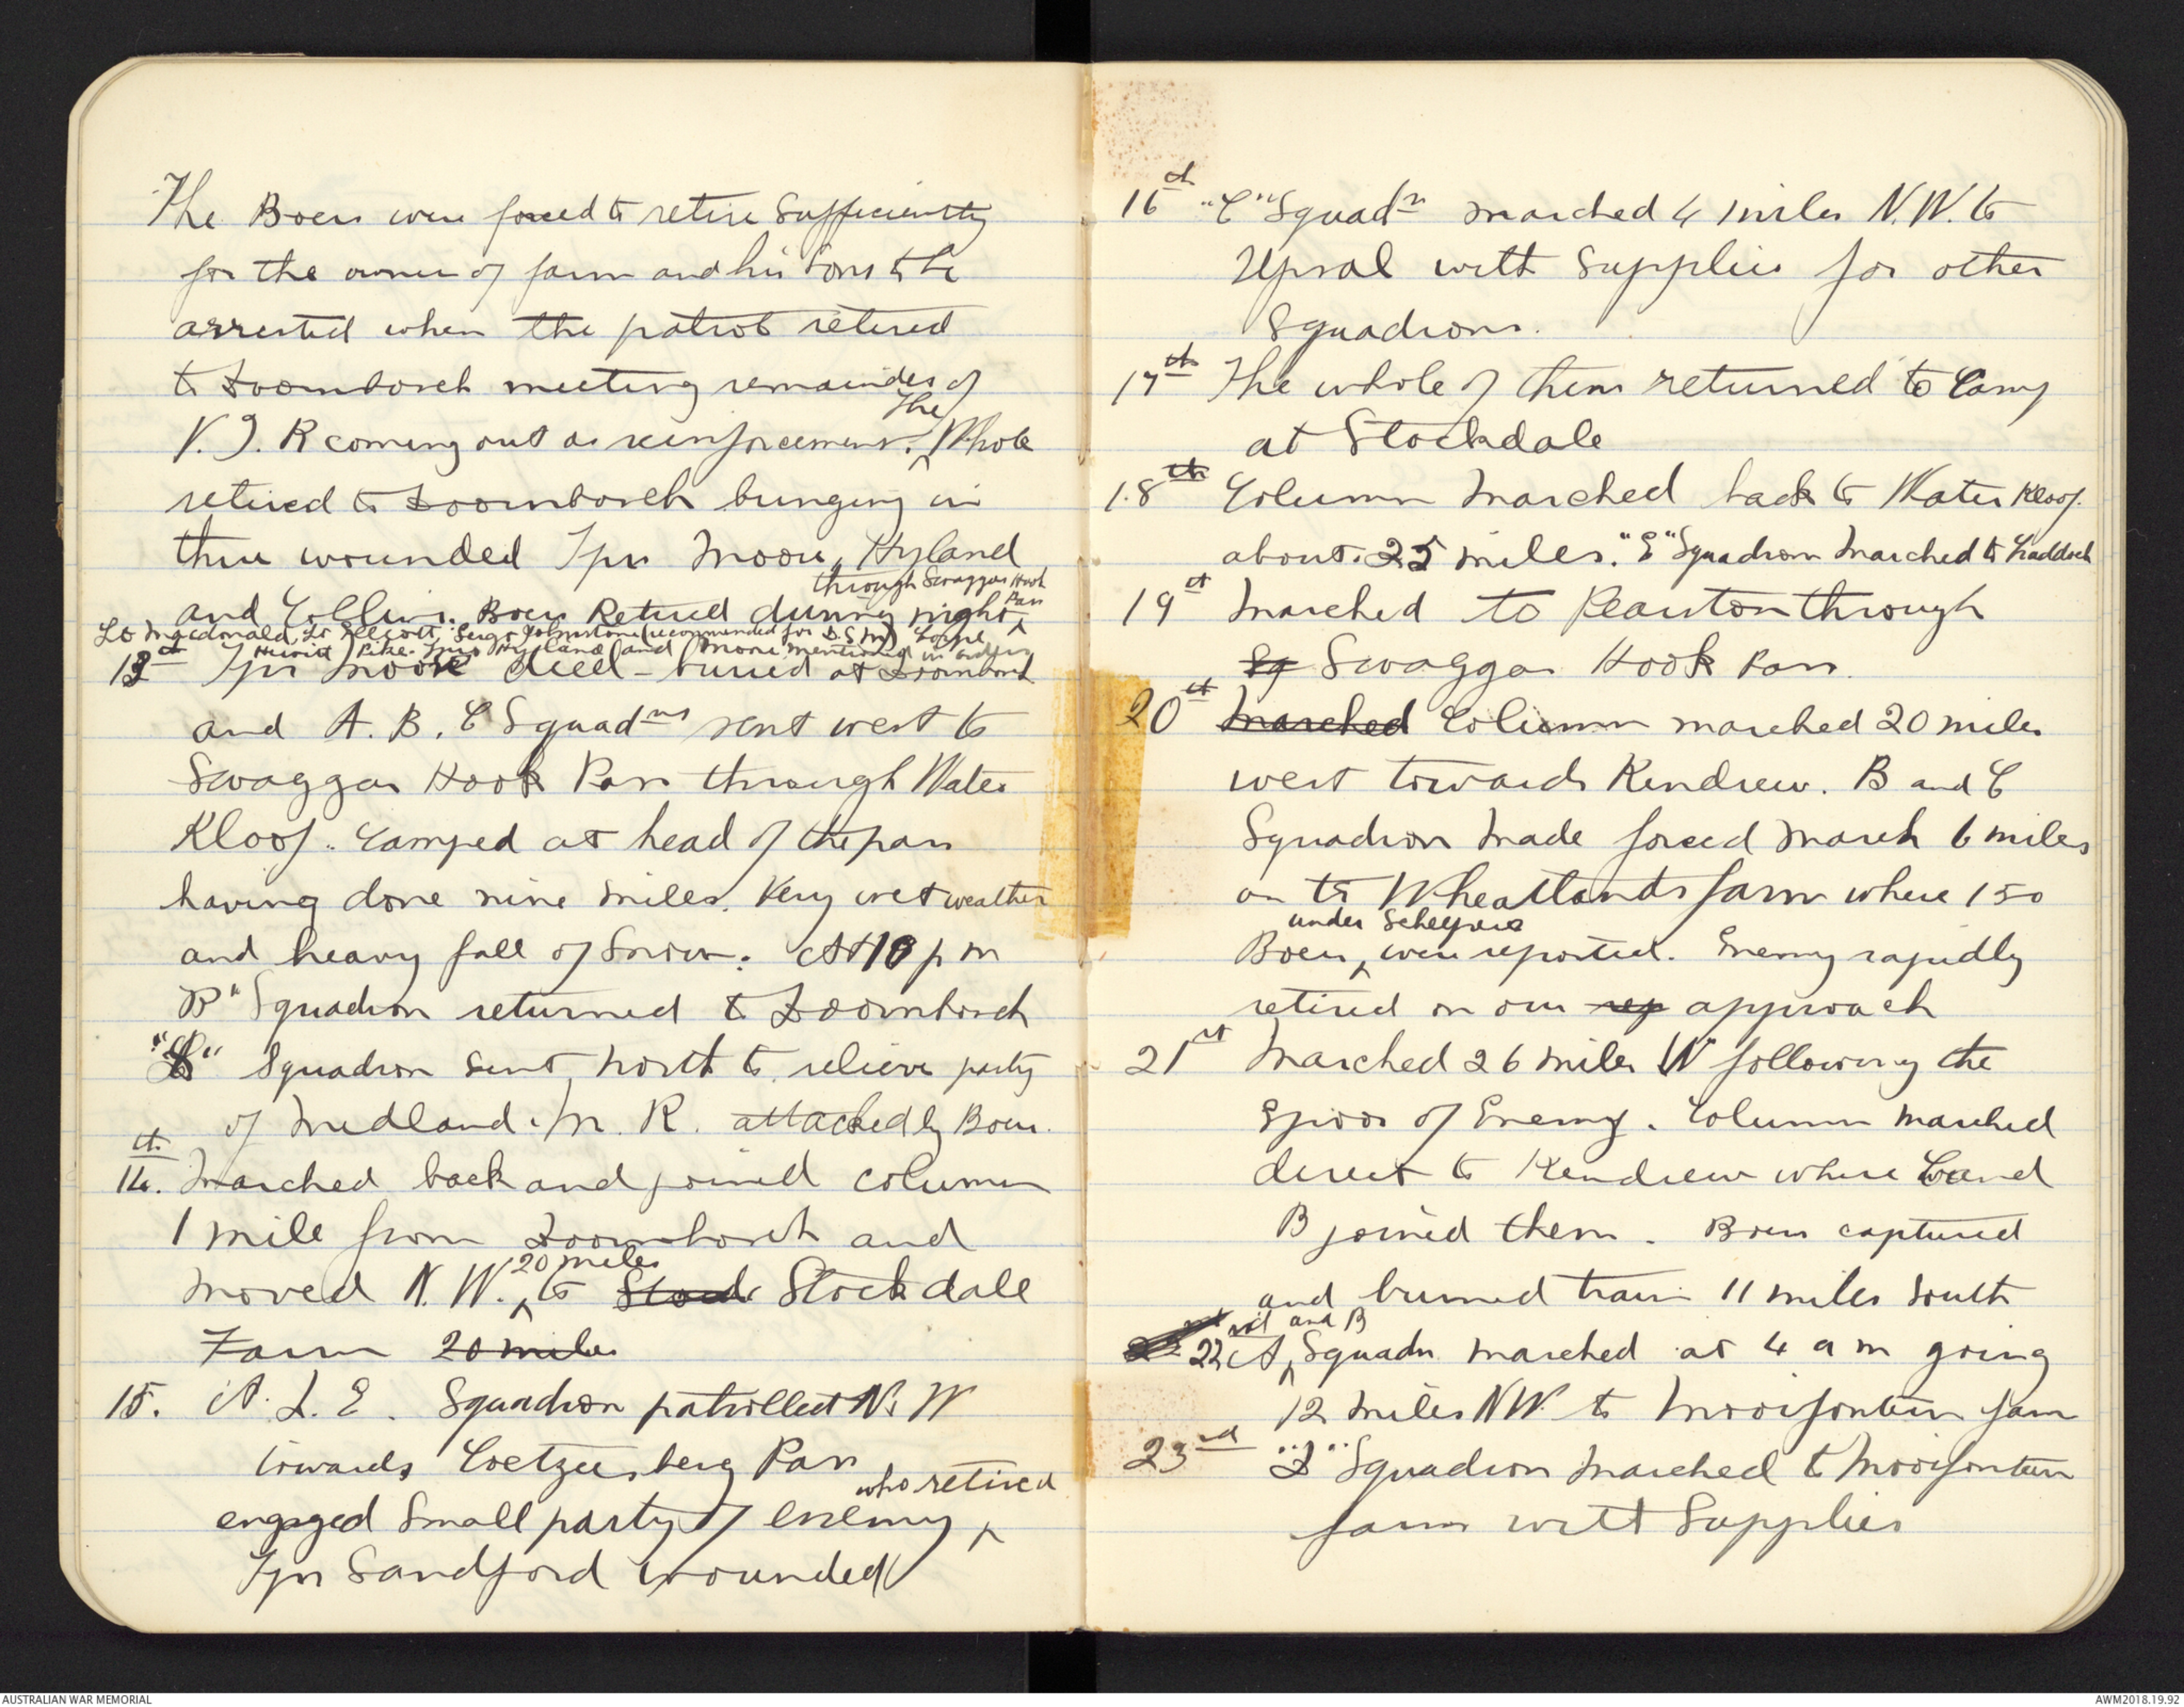 The Boers were forced to retire sufficiently
for the owner of farm and his sons to be
arrested when the patrol retired
to Doornbosch meeting remainder of
V. I. R coming out as reinforcement. The Whole
retired to Doornbosch bringing in
three wounded Tprs Moore, Hyland
and Collins. Boers Retired during night
through Swaggas Hook Pan
Lt Macdonald, Lt Elliott, Sergt Johnstone (recommended for D.S.M)
Hewitt Pike Tprs Hyland and Moore mentioned in orders
13th Tpr Moore died - buried at Doornbosch
and A. B. C Squadns sent west to
Swaggas Hook Pan through Water
Kloof. Camped at head of the pan
having done nine miles. Very wet weather
and heavy fall of Snow. At 10 p m
B" Squadron returned to Doornbosch
Squadron sent north to relieve party
of Midland. M. R. attacked by Boers.
14th. Marched back and joined column
1 mile from Doornbosch and
moved N. W. 20 miles to Stockdale
Farm 20 miles
15. A. D. E. Squadron patrolled N. W
towards Coetzeesberg Pan
engaged small party of enemy who retired
Tpr Sandford wounded
16th "C" Squadn marched 4 miles N.W. to
Upsal with supplies for other
Squadrons.
17th The whole of them returned to Camp
at Stockdale
18th Column marched back to Water Kloof.
about 25 miles. "E" Squadron marched to Craddock
19th Marched to Pearston through
Swaggas Hook Pan.
20th Marched Column marched 20 miles
west towards Kendrew. B and C
Squadron made forced march 6 miles
on to Wheatlands farm where 150
Boers under Scheepers were reported. Enemy rapidly
retired on our rep approach
21st Marched 26 miles W following the
Spoor of Enemy. Column marched
direct to Kendrew where C and
B joined them. Boers captured
and burned train 11 miles south
22nd A and B Squadn marched at 4 a m going
12 miles NW to Mooifontein farm
23rd "D" Squadron marched to Mooifontein
farm with Supplies
AUSTRALIAN WAR MEMORIAL
AWM2018.19.92